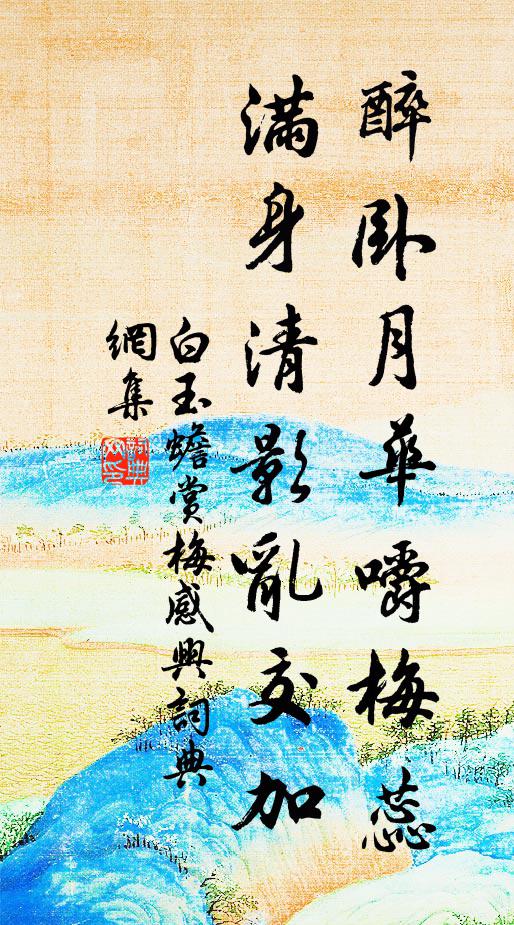 醉卧月華嚼梅蕊
滿身清影亂交加
白玉蟾賞梅感興詞典
網集